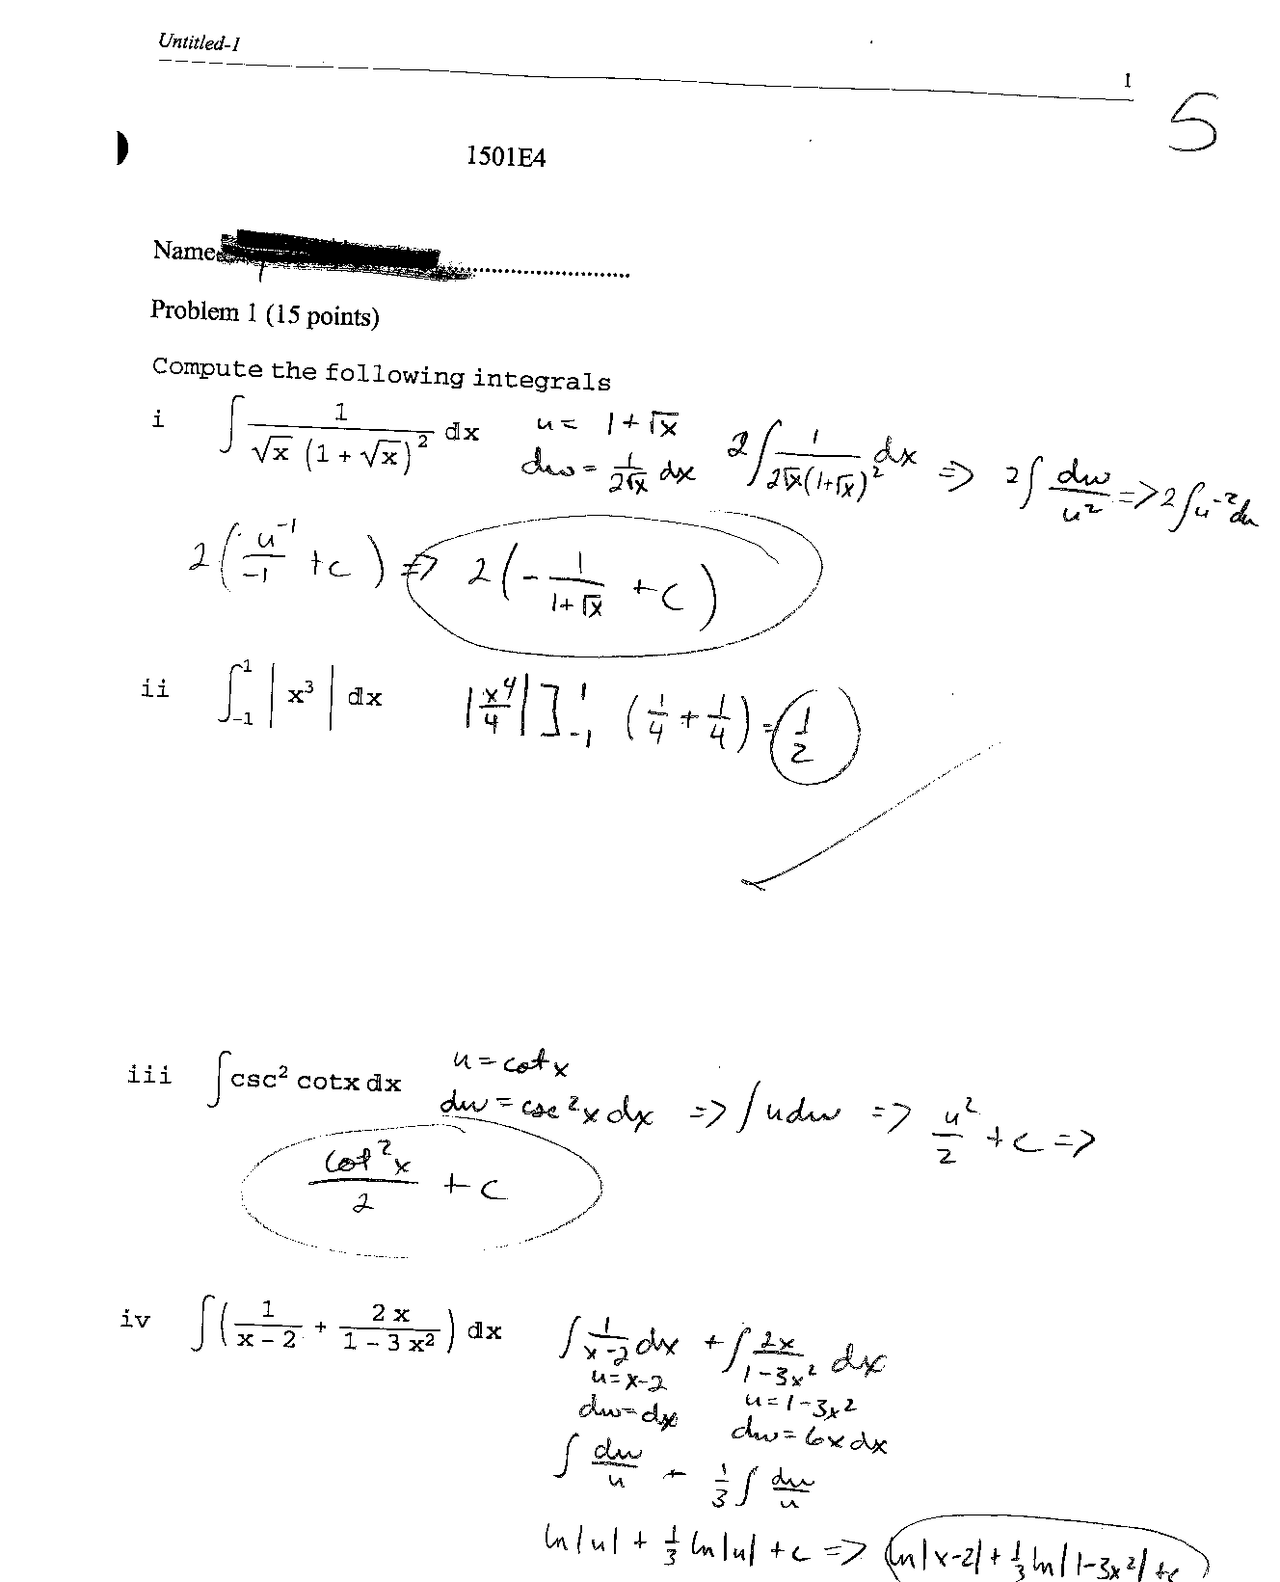 Untitled-1
1
5
1501E4
Name
Problem 1 (15 points)
Compute the following integrals
i ∫ 1/(√x (1 + √x)^2) dx u = 1 + √x 2∫ 1/(2√x(1+√x)^2) dx => 2∫ du/u^2 => 2∫u^-2 du
du = 1/(2√x) dx
2(u^-1/-1 + c) => 2(-1/(1+√x) + c)
ii ∫_-1^1 | x^3 | dx |x^4/4|]_-1^1 (1/4 + 1/4) = 1/2
iii ∫csc^2 cotx dx u = cot x
du = csc^2x dx => ∫udu => u^2/2 + c =>
cot^2x/2 + c
iv ∫(1/(x - 2) + 2 x/(1 - 3 x^2)) dx ∫1/(x-2) dx + ∫2x/(1-3x^2) dx
u=x-2 u=1-3x^2
du=dx du=6x dx
∫ du/u + 1/3 ∫ du/u
ln|u| + 1/3 ln|u| + c => ln|x-2| + 1/3 ln|1-3x^2| + c